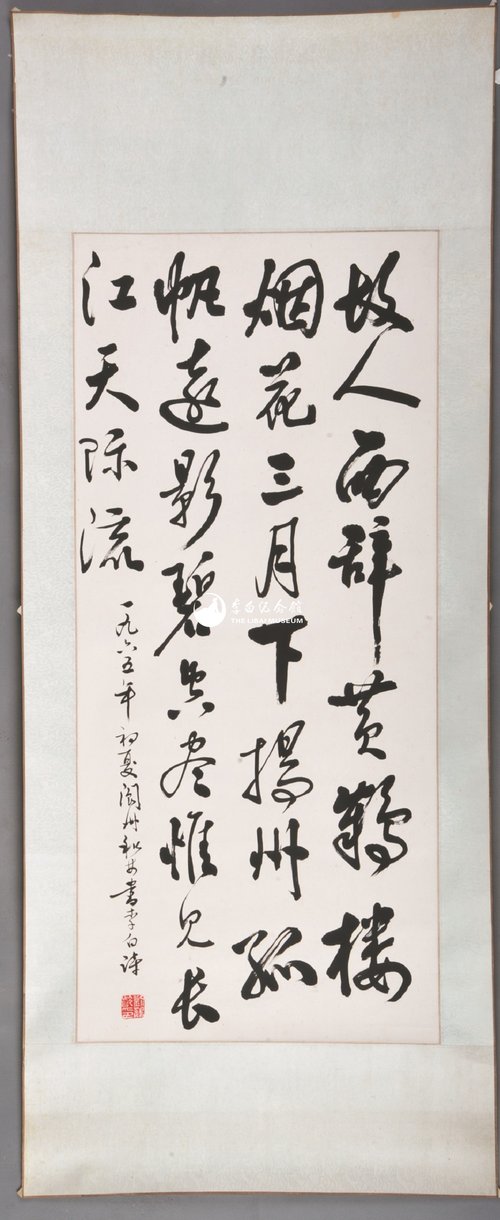 故人西辞黄鶴楼
烟花三月下揚州孤
帆遠影碧空尽惟見長
江天际流
一九六五年初夏阆州書李白诗
李白纪念馆
THE LIBAI MUSEUM